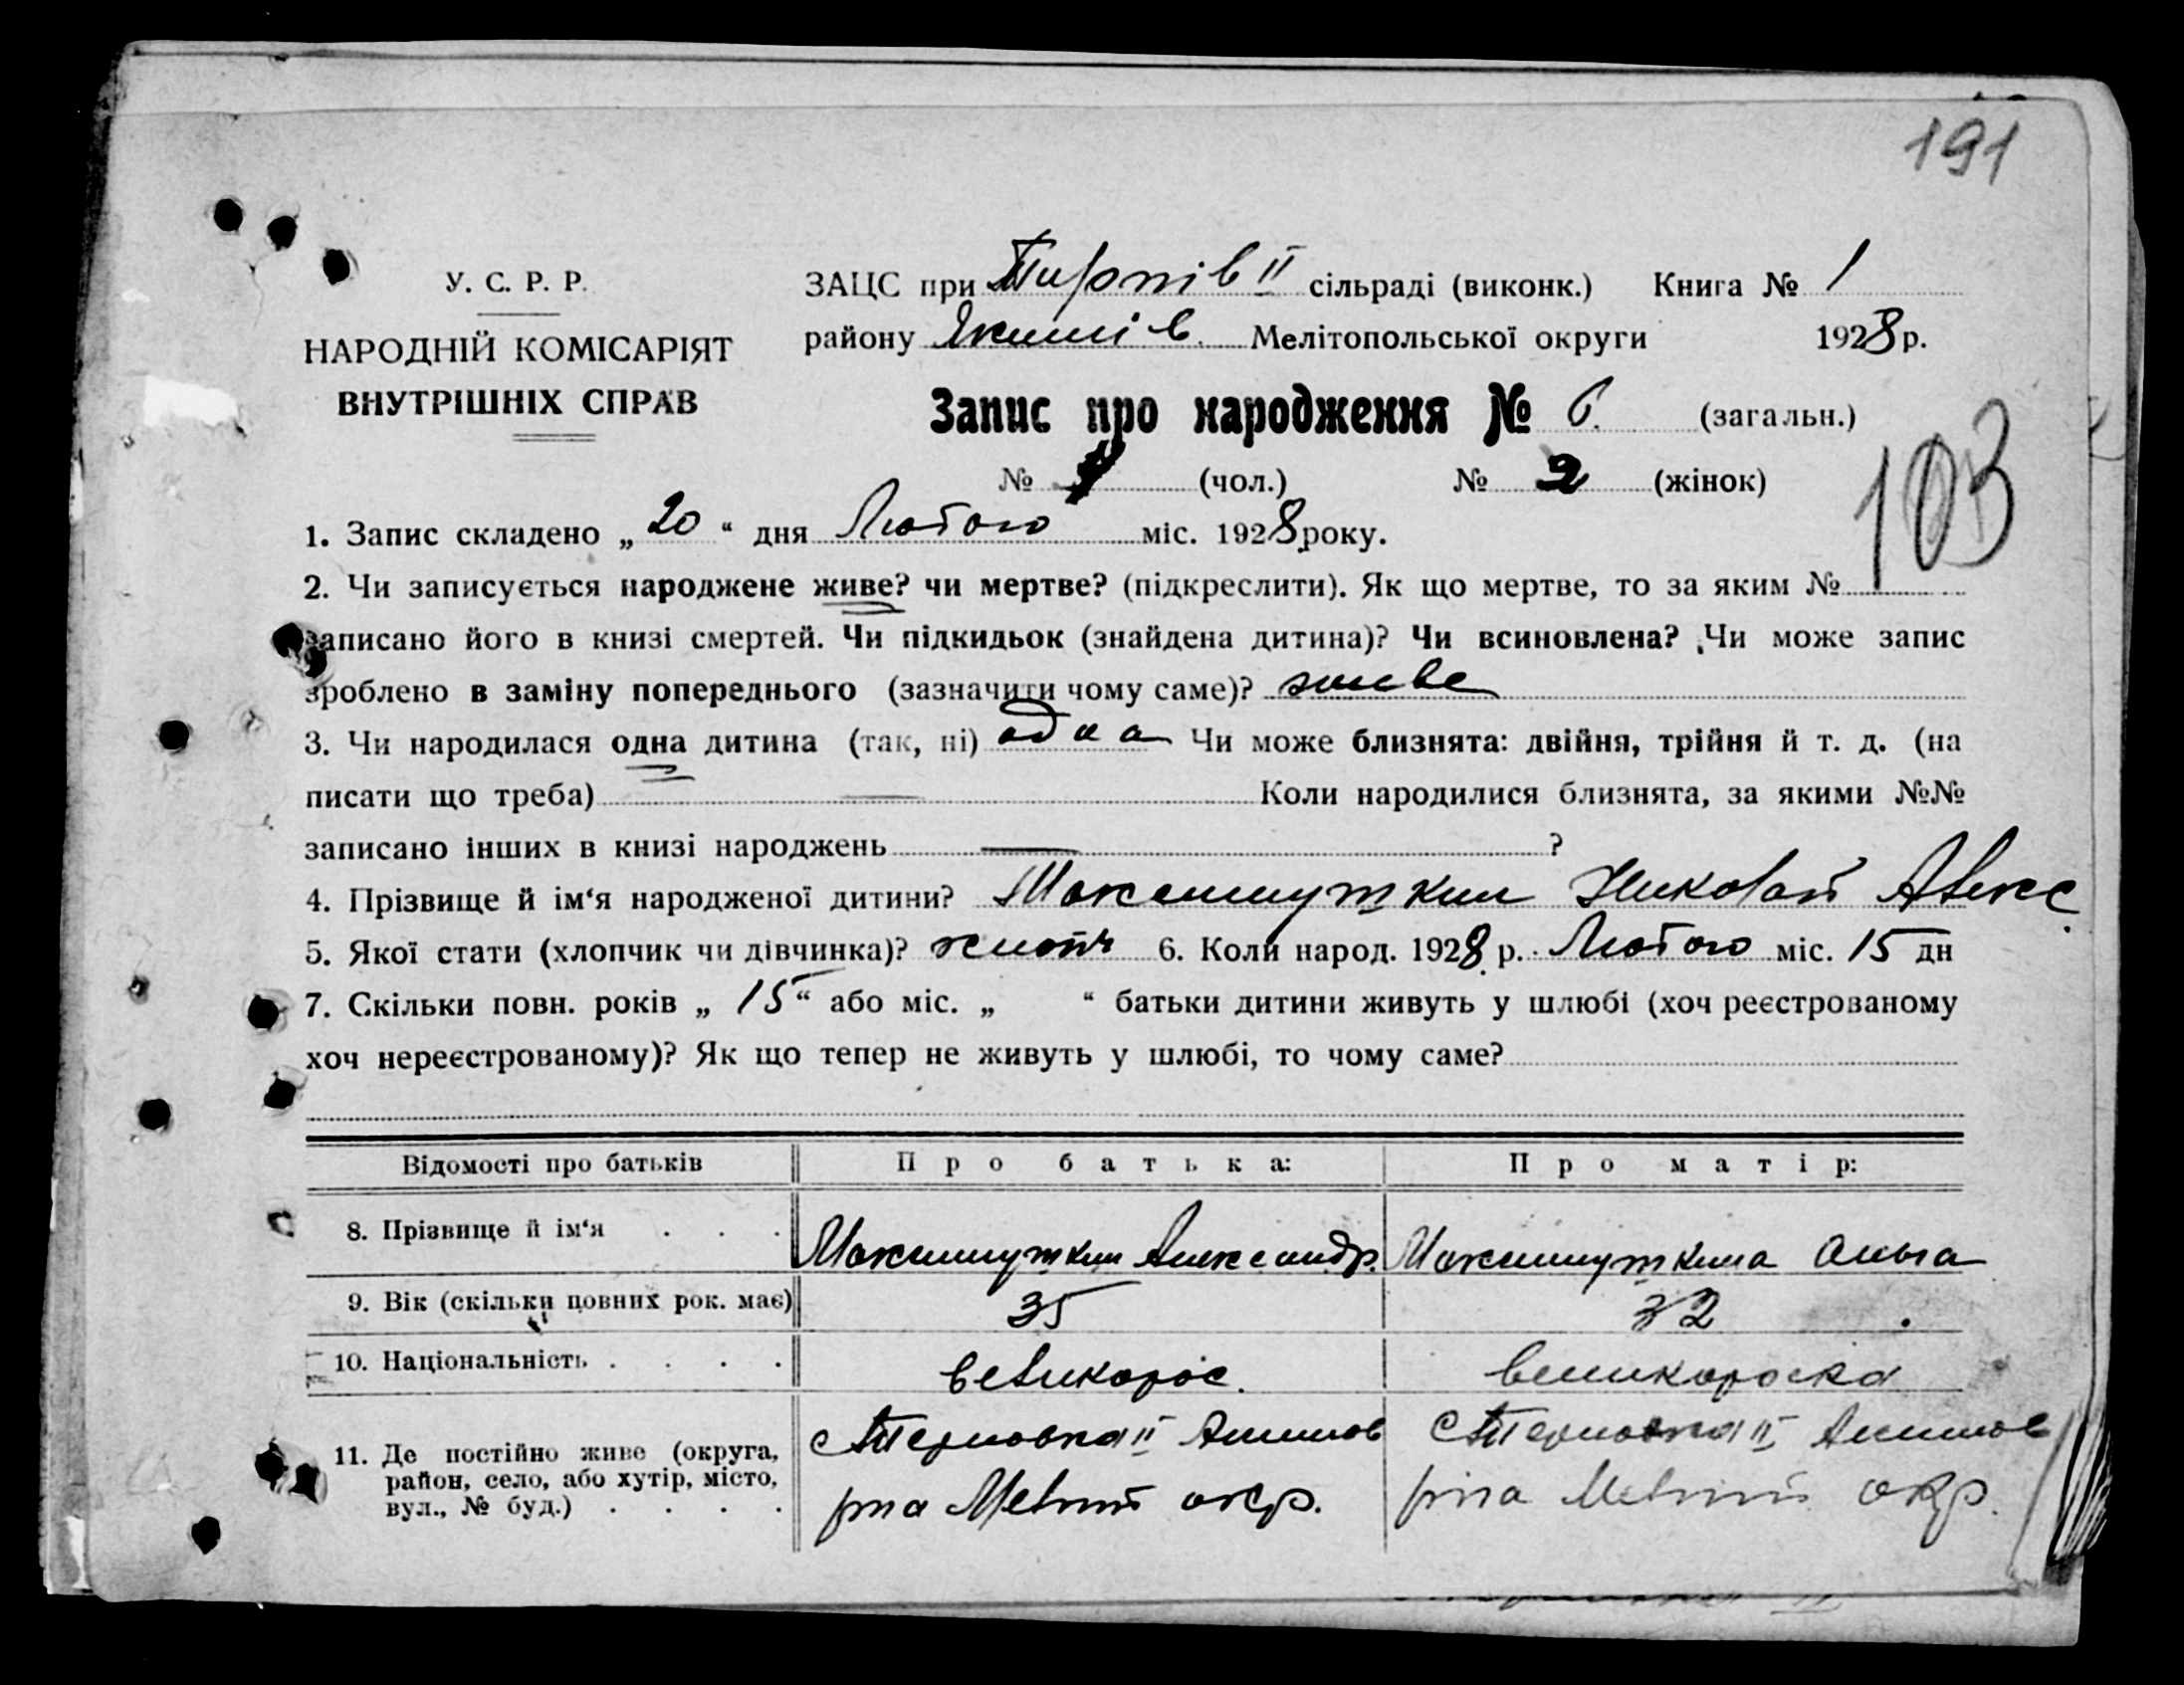 191
У. С. Р. Р.
НАРОДНІЙ КОМІСАРІЯТ
ВНУТРІШНІХ СПРАВ
ЗАЦС при II сільраді (виконк.) Книга № 1
району Якимів. Мелітопольської округи 1928 р.
Запис про народження № 6. (загальн.)
№ (чол.) № 2 (жінок)
103
1. Запис складено „ 20 “ дня Лютого міс. 1928 року.
2. Чи записується народжене живе? чи мертве? (підкреслити). Як що мертве, то за яким №
записано його в книзі смертей. Чи підкидьок (знайдена дитина)? Чи всиновлена? Чи може запис
зроблено в заміну попереднього (зазначити чому саме)? живе
3. Чи народилася одна дитина (так, ні) одна Чи може близнята: двійня, трійня й т. д. (на
писати що треба) — Коли народилися близнята, за якими №№
записано інших в книзі народжень — ?
4. Прізвище й ім‘я народженої дитини? Максимуткин Николай Алекс.
5. Якої стати (хлопчик чи дівчинка)? хлопч 6. Коли народ. 1928 р. Лютого міс. 15 дн
7. Скільки повн. років „ 15 “ або міс. „ “ батьки дитини живуть у шлюбі (хоч реєстрованому
хоч нереєстрованому)? Як що тепер не живуть у шлюбі, то чому саме?
Відомості про батьків Про батька: Про матір:
8. Прізвище й ім‘я . . . Максимуткин Александр. Максимуткина Ольга
9. Вік (скільки повних рок. має) 35 32
10. Національність . . . . великорос. великороска
11. Де постійно живе (округа, с Терновка II Акимов с Терновка II Акимов
район, село, або хутір, місто,
вул., № буд.) . . . . р-на Мелит окр. р-на Мелит окр.